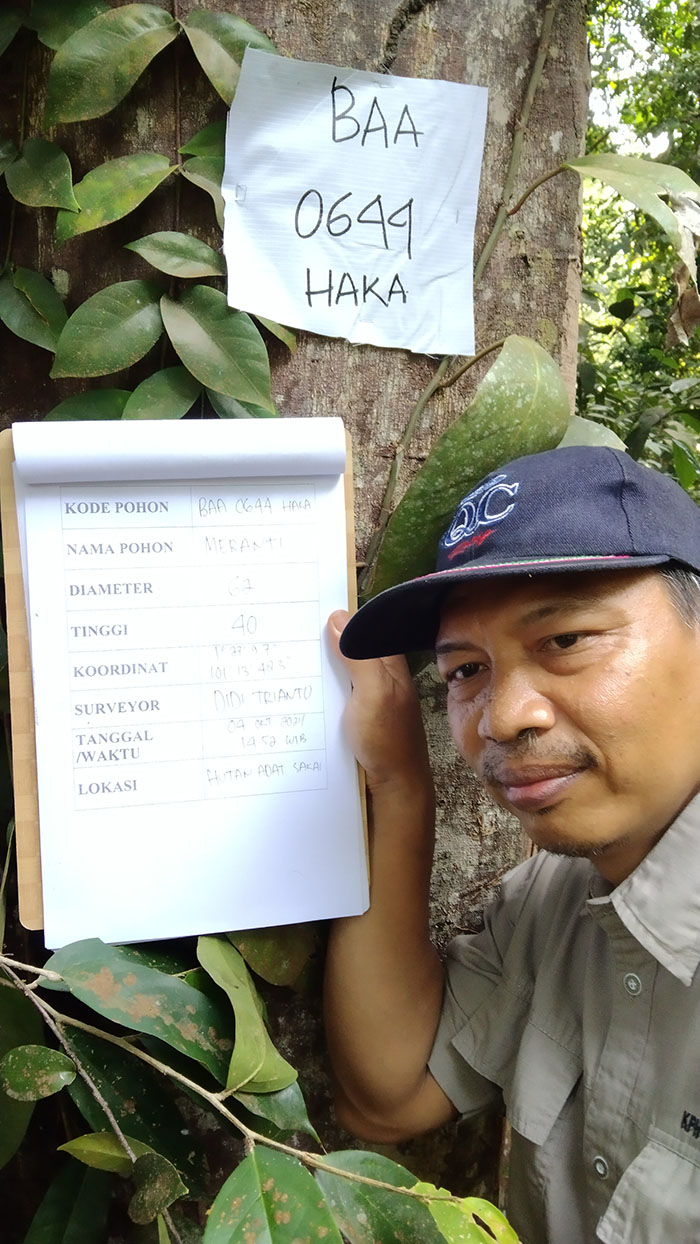 BAA
0644
HAKA
QC
KODE POHON BAA 0644 HAKA
NAMA POHON MERANTI
DIAMETER 62
TINGGI 40
KOORDINAT
SURVEYOR DIDI TRIANTO
TANGGAL
/WAKTU 14 52 WIB
LOKASI HUTAN ADAT SAKAI